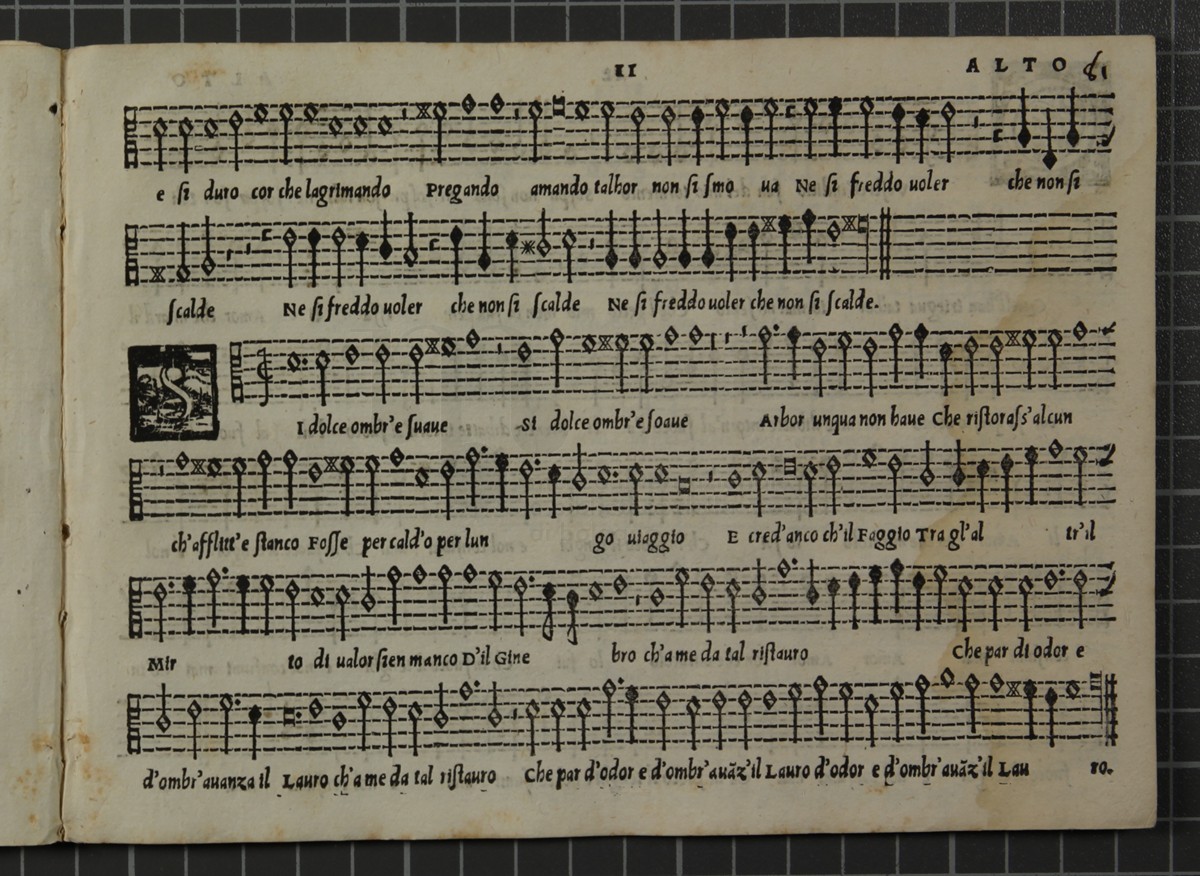 11 ALTO 61
e si duro cor che lagrimando Pregando amando talhor non si smo ua Ne si freddo uoler che non si
scalde Ne si freddo uoler che non si scalde Ne si freddo uoler che non si scalde.
SI dolce ombr'e suaue Si dolce ombr'e soaue Arbor unqua non haue Che ristorass'alcun
ch'afflitt'e stanco Fosse per cald'o per lun go uiaggio E cred'anco ch'il Faggio Tra gl'al tr'il
Mir to di ualor sien manco D'il Gine bro ch'a me da tal ristauro Che par di odor e
d'ombr'auanza il Lauro ch'a me da tal ristauro Che par d'odor e d'ombr'auãz'il Lauro d'odor e d'ombr'auãz'il Lau ro.